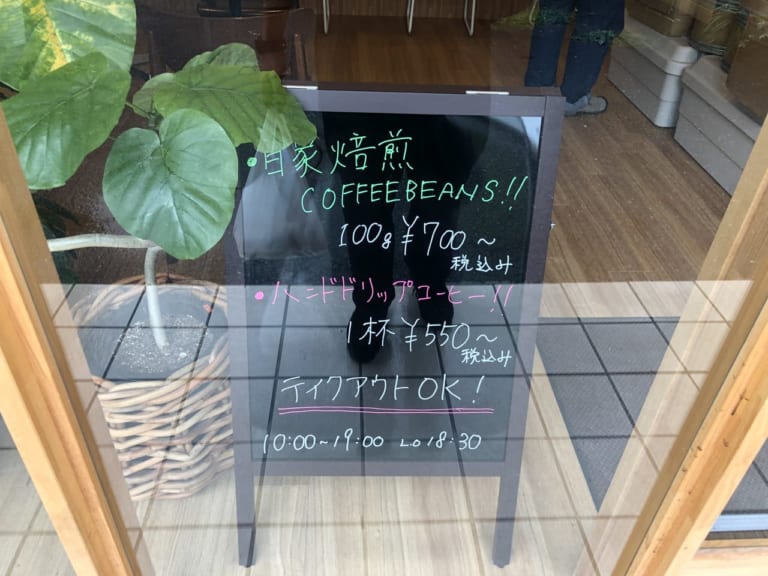 ・自家焙煎
COFFEEBEANS!!
100g ¥700~
税込み
・ハンドドリップコーヒー!!
1杯 ¥550~
税込み
テイクアウトOK!
10:00~19:00 LO 18:30